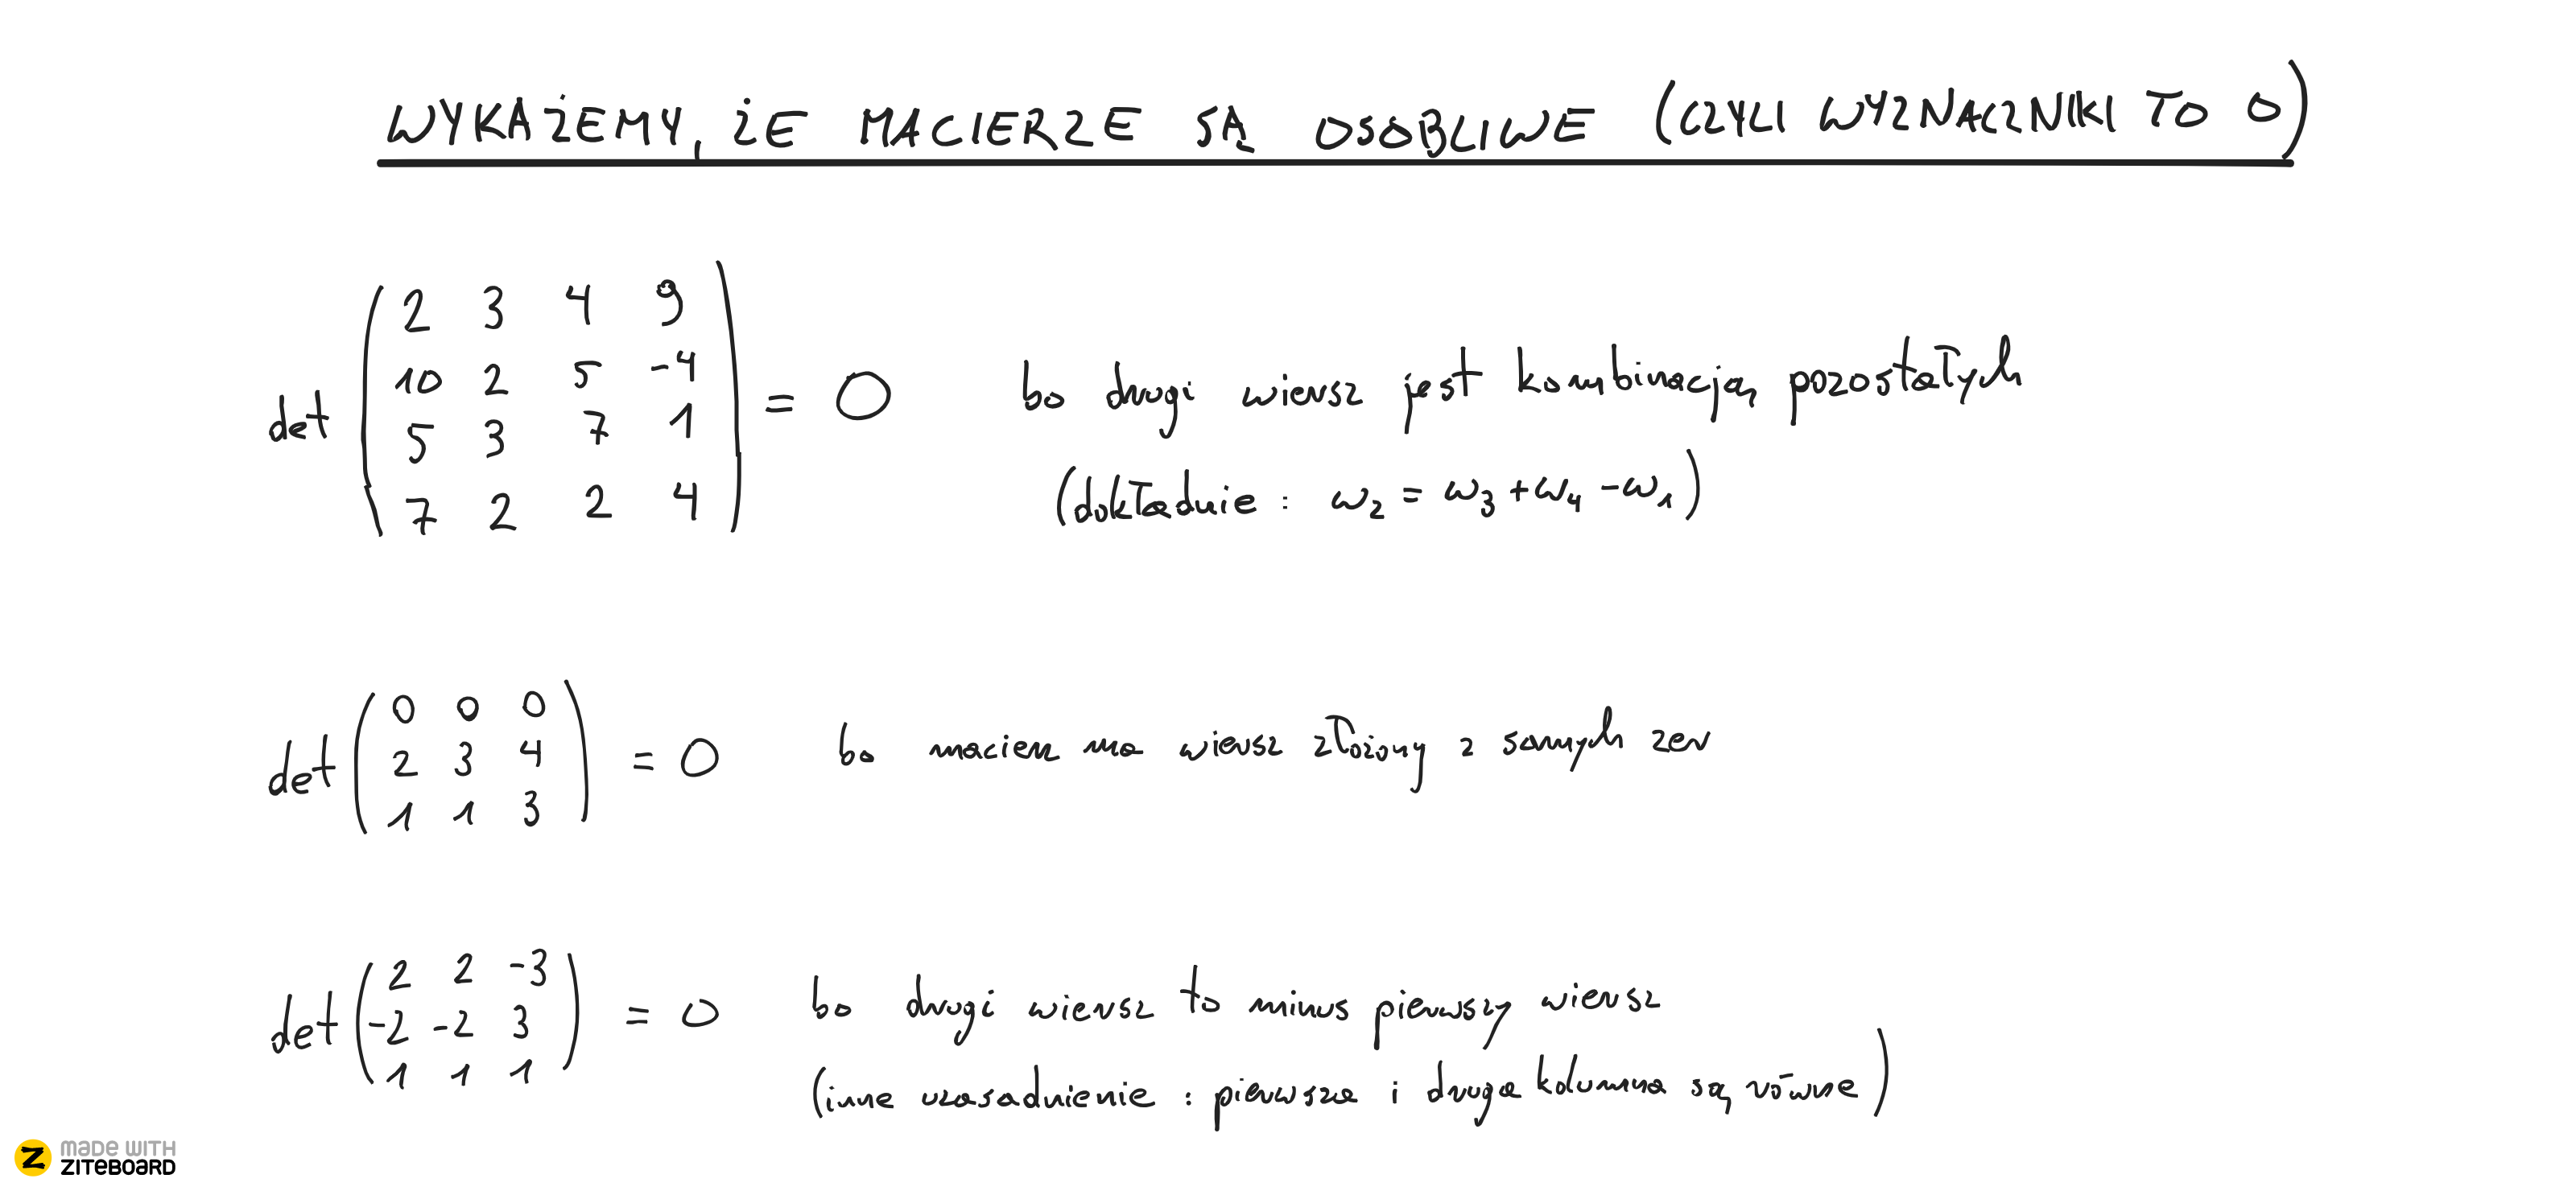 WYKAŻEMY, ŻE MACIERZE SĄ OSOBLIWE (CZYLI WYZNACZNIKI TO 0)
2 3 4 9
10 2 5 -4
det = 0 bo drugi wiersz jest kombinacją pozostałych
5 3 7 1
(dokładnie : w₂ = w₃ + w₄ - w₁)
7 2 2 4
0 0 0
det 2 3 4 = 0 bo macierz ma wiersz złożony z samych zer
1 1 3
2 2 -3
det -2 -2 3 = 0 bo drugi wiersz to minus pierwszy wiersz
1 1 1
(inne uzasadnienie : pierwsza i druga kolumna są równe)
MADE WITH
ZITEBOARD